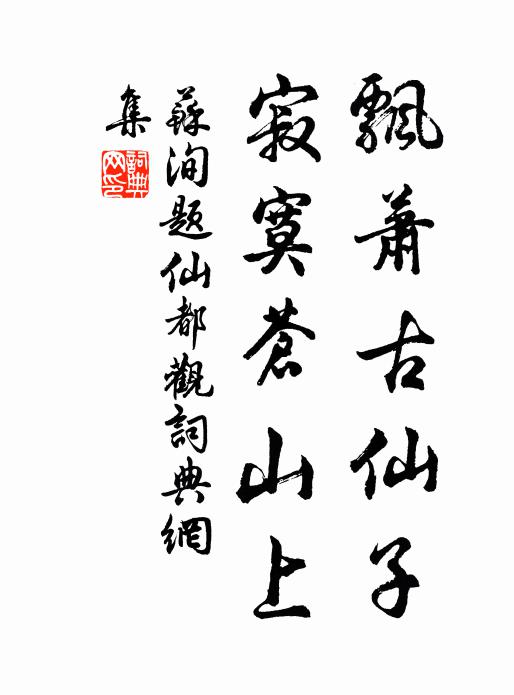 飄蕭古仙子
寂寞蒼山上
蘇洵題仙都觀詞典網
集
詞典
网印